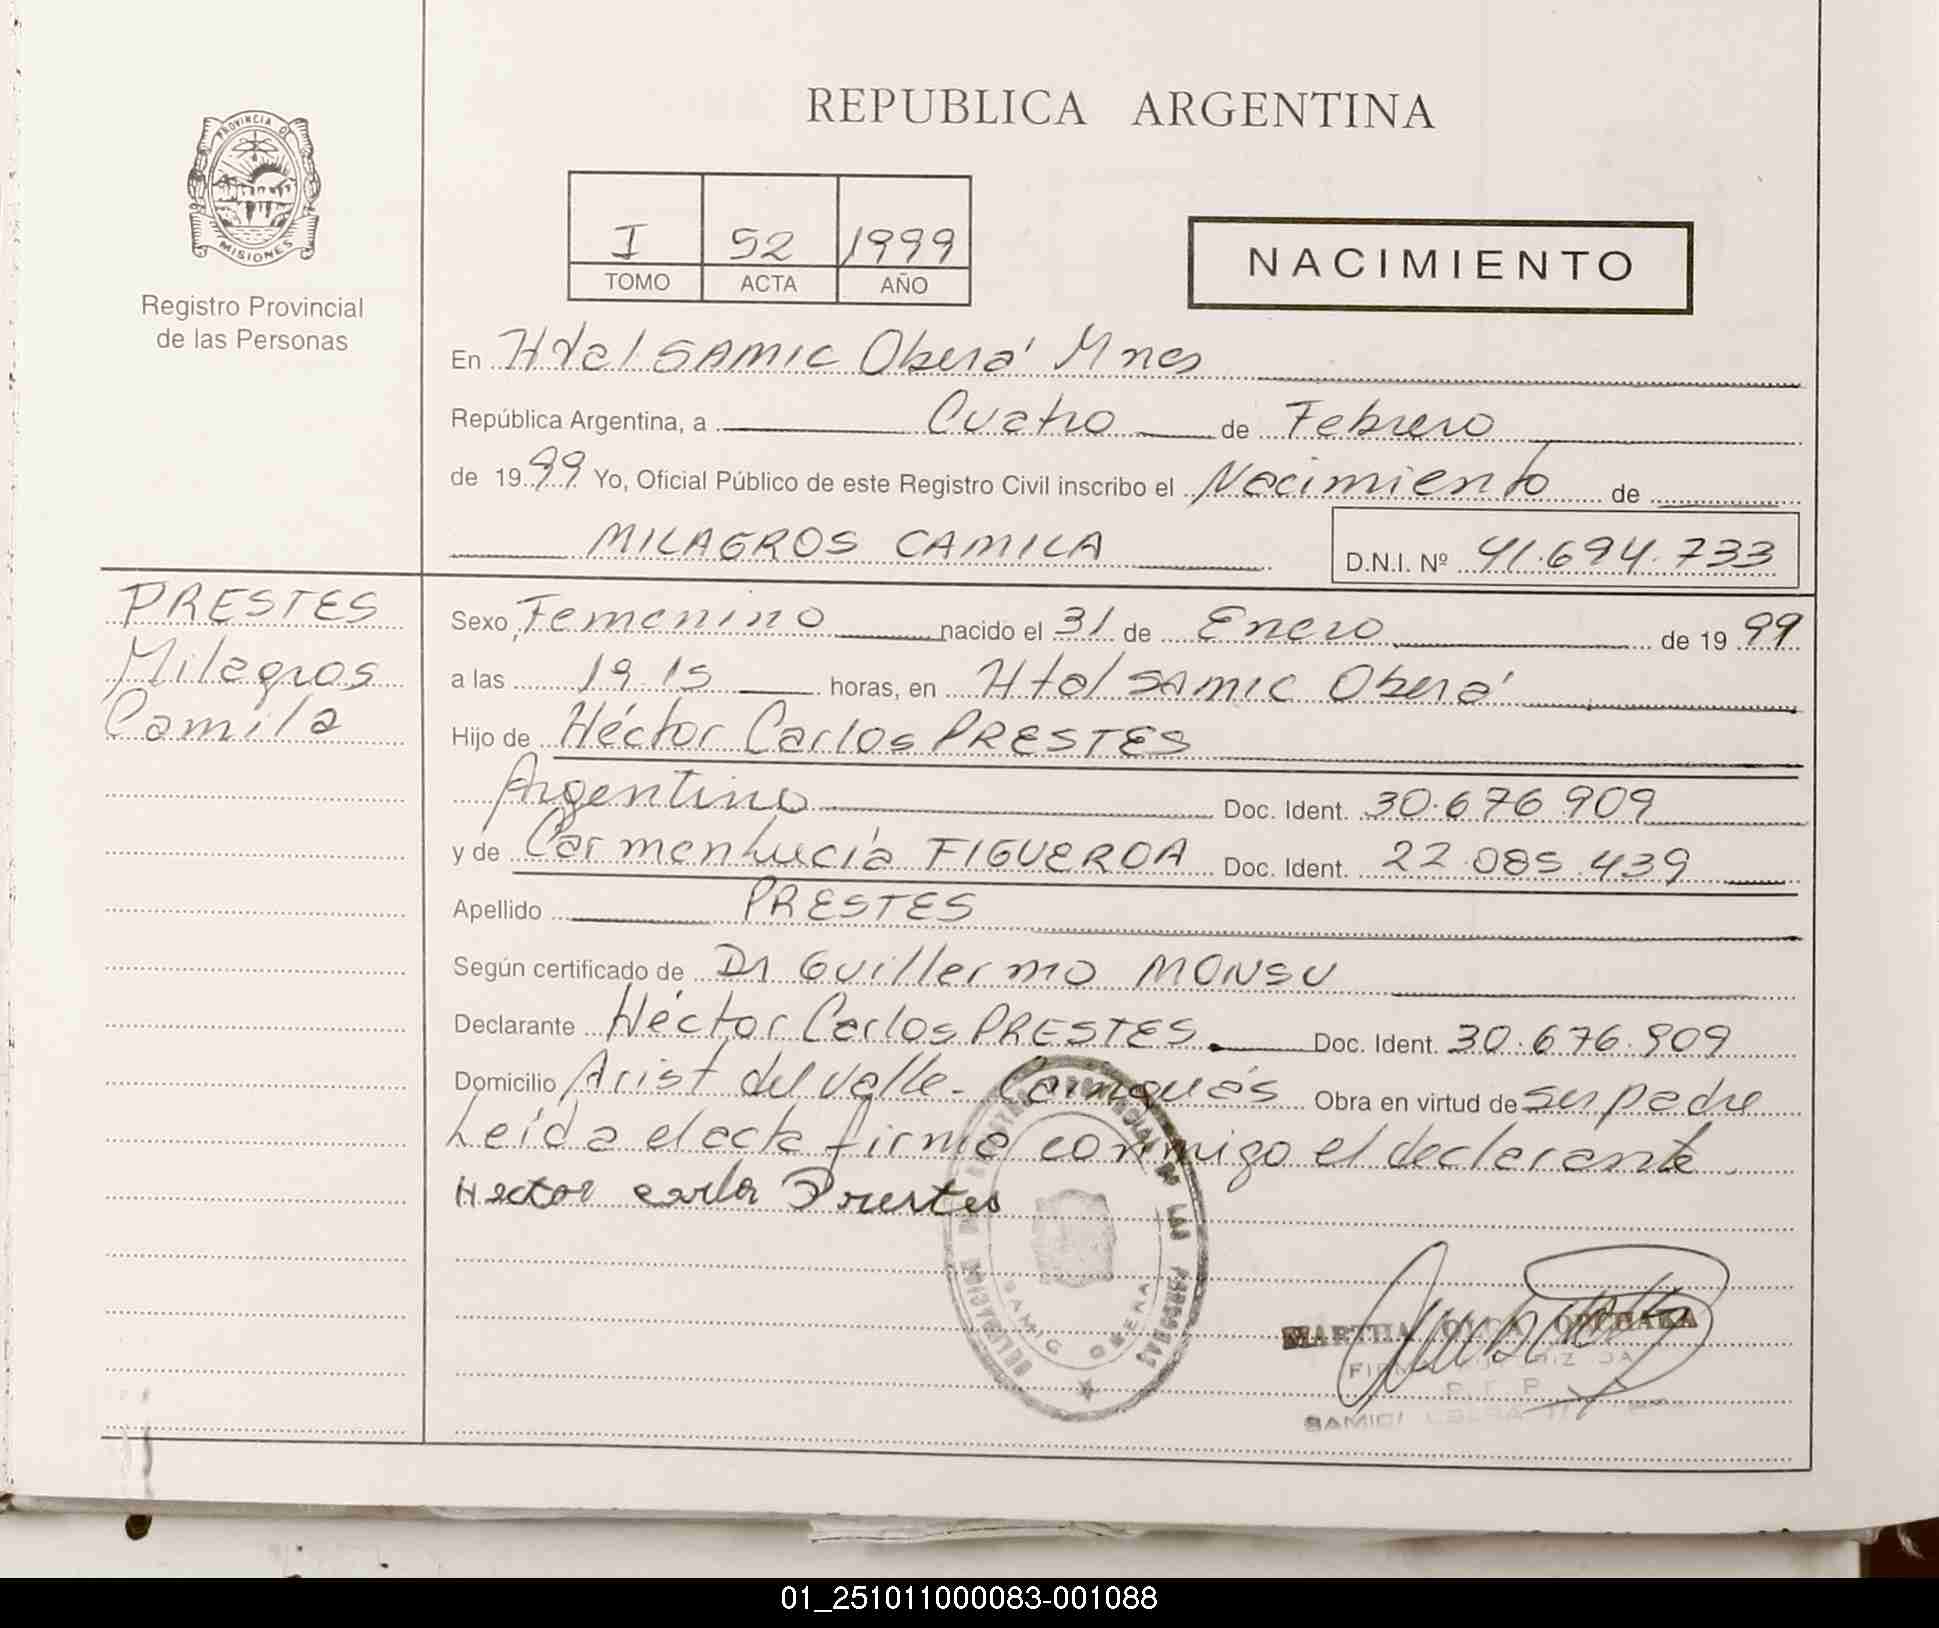 REPUBLICA ARGENTINA
PROVINCIA DE
MISIONES
Registro Provincial
de las Personas
I 52 1999
TOMO ACTA AÑO
NACIMIENTO
En Htal SAMIC Oberá Mnes
República Argentina, a Cuatro de Febrero
de 1999 Yo, Oficial Público de este Registro Civil inscribo el Nacimiento de
MILAGROS CAMILA D.N.I. Nº 41.694.733
PRESTES
Milagros
Camila
Sexo Femenino nacido el 31 de Enero de 1999
a las 19.15 horas, en Htal SAMIC Oberá
Hijo de Héctor Carlos PRESTES
Argentino Doc. Ident. 30.676.909
y de Carmen Lucía FIGUEROA Doc. Ident. 22.085.439
Apellido PRESTES
Según certificado de Dr Guillermo MONSU
Declarante Héctor Carlos PRESTES Doc. Ident. 30.676.909
Domicilio Arist del Valle - Cainguás Obra en virtud de su padre
Leída el acta firma conmigo el declarante
Hector carlos Prestes
DE LAS PERSONAS
SAMIC OBERA
MARTHA OLGA
01_251011000083-001088